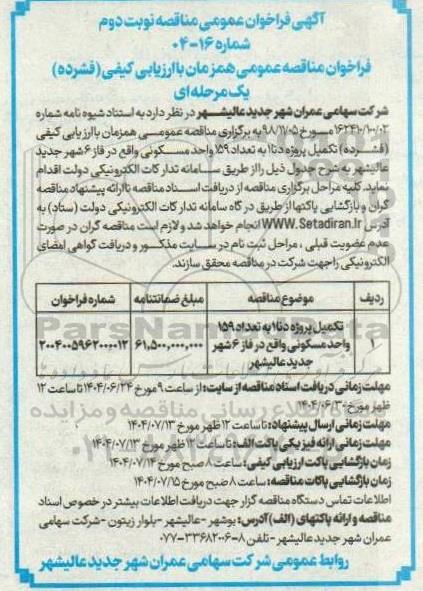 آگهی فراخوان عمومی مناقصه نوبت دوم
شماره ۱۶-۰۴
فراخوان مناقصه عمومی همزمان با ارزیابی کیفی (فشرده)
یک مرحله‌ای
شرکت سهامی عمران شهر جدید عالیشهر در نظر دارد به استناد شیوه نامه شماره
۱۶۲۴۱۰/۱۰۰/۰۲ مورخ ۹۸/۱۱/۰۵ به برگزاری مناقصه عمومی همزمان با ارزیابی کیفی
(فشرده) تکمیل پروژه دنا۱ به تعداد ۱۵۹ واحد مسکونی واقع در فاز ۶ شهر جدید
عالیشهر به شرح جدول ذیل را از طریق سامانه تدارکات الکترونیکی دولت اقدام
نماید. کلیه مراحل برگزاری مناقصه از دریافت اسناد مناقصه تا ارائه پیشنهاد مناقصه
گران و بازگشایی پاکتها از طریق درگاه سامانه تدارکات الکترونیکی دولت (ستاد) به
آدرس WWW.Setadiran.Ir انجام خواهد شد و لازم است مناقصه گران در صورت
عدم عضویت قبلی، مراحل ثبت نام در سایت مذکور و دریافت گواهی امضای
الکترونیکی را جهت شرکت در مناقصه محقق سازند.
ردیف موضوع مناقصه مبلغ ضمانتنامه شماره فراخوان
۱ تکمیل پروژه دنا۱ به تعداد ۱۵۹ واحد مسکونی واقع در فاز ۶ شهر جدید عالیشهر ۶۱,۵۰۰,۰۰۰,۰۰۰ ۲۰۰۴۰۰۵۹۶۲۰۰۰۰۱۲
مهلت زمانی دریافت اسناد مناقصه از سایت: از ساعت ۹ مورخ ۱۴۰۴/۰۶/۲۴ تا ساعت ۱۲
ظهر مورخ ۱۴۰۴/۰۶/۳۰
مهلت زمانی ارسال پیشنهاد: تا ساعت ۱۲ ظهر مورخ ۱۴۰۴/۰۷/۱۳
مهلت زمانی ارائه فیزیکی پاکت الف: تا ساعت ۱۲ ظهر مورخ ۱۴۰۴/۰۷/۱۳
زمان بازگشایی پاکت ارزیابی کیفی: ساعت ۸ صبح مورخ ۱۴۰۴/۰۷/۱۴
زمان بازگشایی پاکات مناقصه: ساعت ۸ صبح مورخ ۱۴۰۴/۰۷/۱۵
اطلاعات تماس دستگاه مناقصه گزار جهت دریافت اطلاعات بیشتر در خصوص اسناد
مناقصه و ارائه پاکتهای (الف) آدرس: بوشهر - عالیشهر - بلوار زیتون - شرکت سهامی
عمران شهر جدید عالیشهر - تلفن ۸-۳۳۶۸۲۰۰۶-۰۷۷
روابط عمومی شرکت سهامی عمران شهر جدید عالیشهر